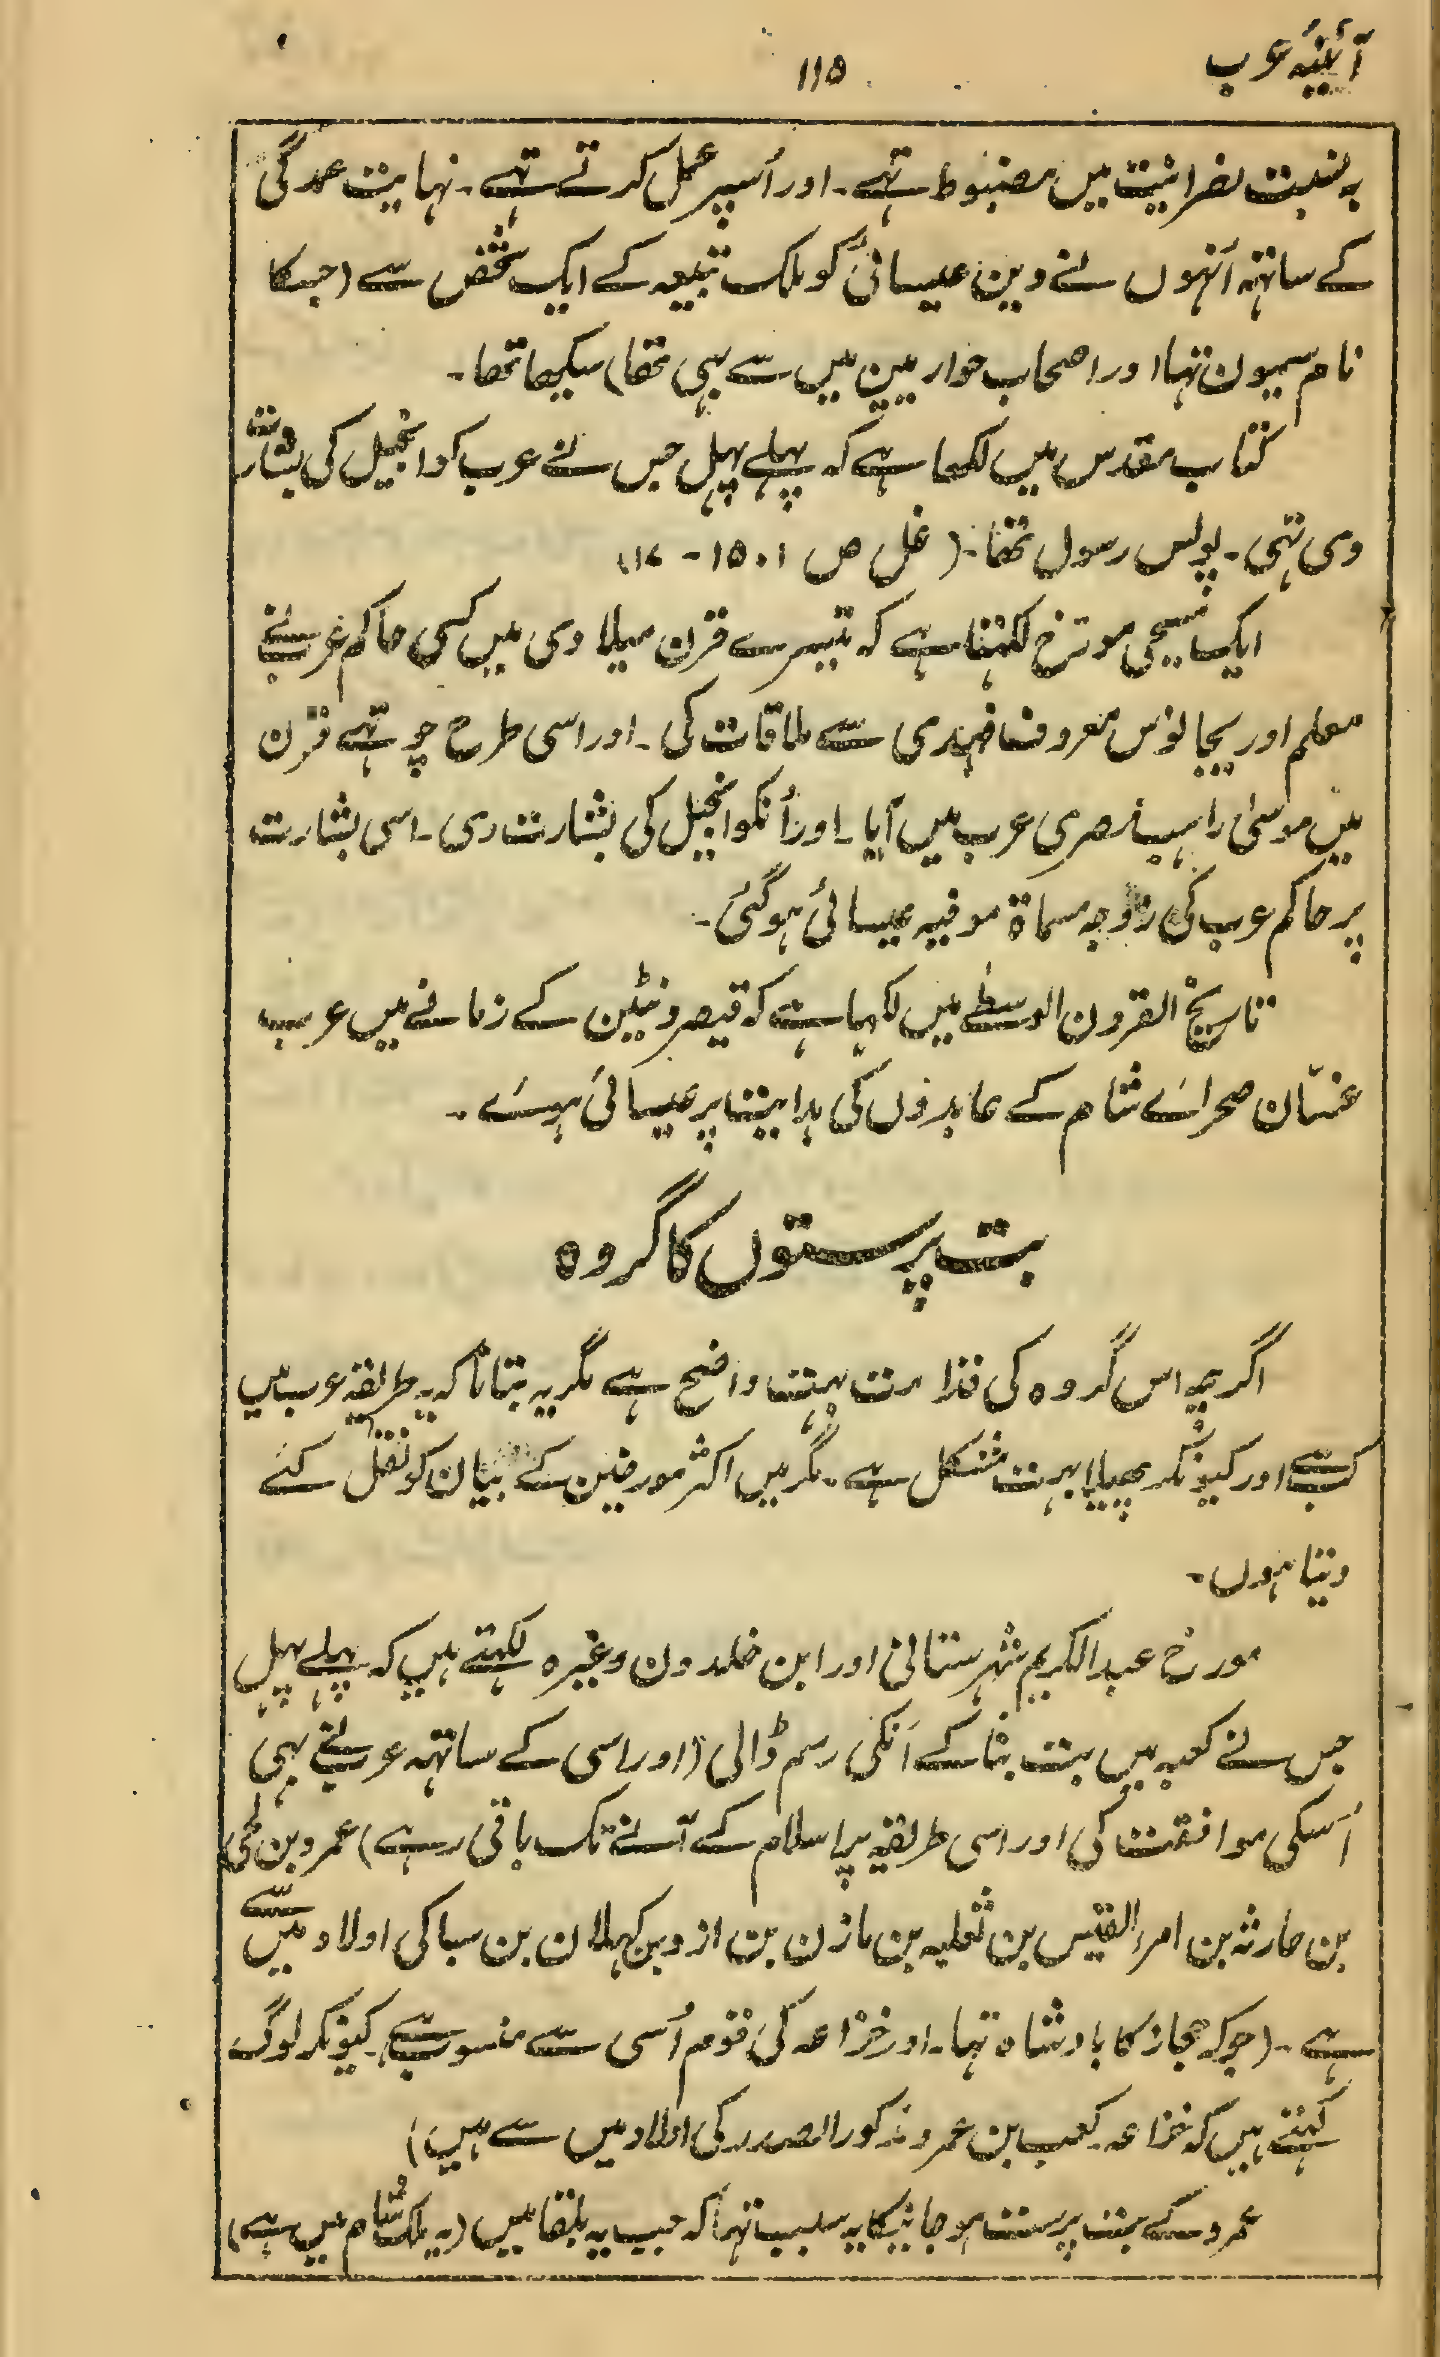 آئینہ عرب
۱۱۵
بہ نسبت نصرانیت میں مضبوط تہے۔ اور اُسپر عمل کرتے تہے۔ نہایت عمدگی
کے ساتہہ اُنہوں نے دین عیسائی کو ملک تبیعہ کے ایک شخص سے (جسکا
نام سمیون تہا اور اصحاب حواریین میں سے بہی تھا) سیکہا تھا۔
کتاب مقدس میں لکھا ہے کہ پہلے پہل جس نے عرب کو انجیل کی بشارت
دی تہی۔ پولس رسول تھا۔ (غل ص ۱۔۱۵ - ۱۷)
ایک مسیحی مورخ لکہتا ہے کہ تیسرے قرن میلادی میں کسی حاکم عرب نے
معلم اوریجانوس معروف فہندی سے ملاقات کی۔ اور اسی طرح چوتہے قرن
میں موسیٰ راہب مصری عرب میں آیا۔ اور اُنکو انجیل کی بشارت دی۔ اسی بشارت
پر حاکم عرب کی زوجہ مسماۃ موفیہ عیسائی ہوگئی۔
تاریخ القرون الوسطے میں لکہا ہے کہ قیصر ونٹین کے زمانے میں عرب
غسّان صحرائے شام کے عابدوں کی ہدایت پر عیسائی ہوئے۔
بت پرستوں کا گروہ
اگرچہ اس گروہ کی قدامت بہت واضح ہے مگر یہ بتانا کہ یہ طریقہ عرب میں
کب سے اور کیونکر پھیلا بہت مشکل ہے۔ مگر میں اکثر مورخین کے بیان کو نقل کئے
دیتا ہوں۔
مورخ عبدالکریم شہرستانی اور ابن خلدون وغیرہ لکہتے ہیں کہ پہلے پہل
جس نے کعبہ میں بت بٹھا کے اُنکی رسم ڈالی (اور اسی کے ساتہہ عرب نے بہی
اُسکی موافقت کی اور اسی طریقہ پر اسلام کے آنے تک باقی رہے) عمرو بن لحی
بن حارثہ بن امرءالقیس بن ثعلبہ بن مازن بن ازد بن کہلان بن سبا کی اولاد میں سے
ہے۔ (جو کہ حجاز کا بادشاہ تہا۔ اور خزاعہ کی قوم اُسی سے منسوب ہے۔ کیونکہ لوگ
کہتے ہیں کہ خزاعہ۔ کعب بن عمرو مذکور الصدر کی اولاد میں سے ہیں)
عمرو کے بت پرست ہوجانیکا یہ سبب تہا کہ جب یہ بلقا میں (یہ ملک شام میں ہے)